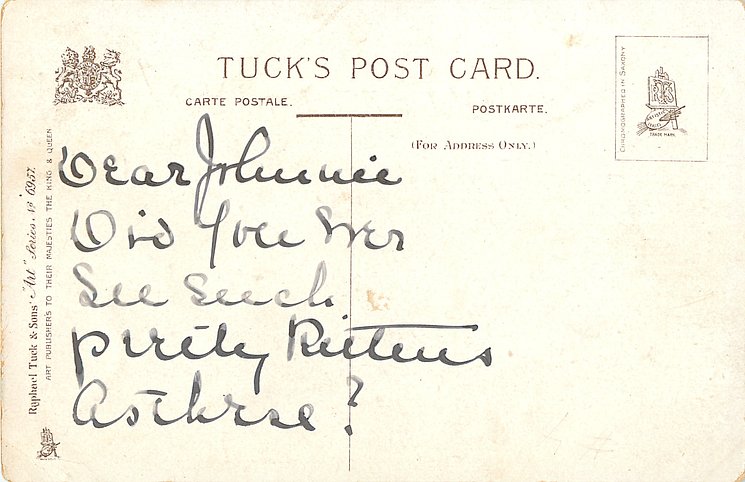 TUCK'S POST CARD.
CARTE POSTALE.
POSTKARTE.
(FOR ADDRESS ONLY.)
CHROMOGRAPHED IN SAXONY
TRADE MARK
Raphael Tuck & Sons' "Art" Series, No 6957.
ART PUBLISHERS TO THEIR MAJESTIES THE KING & QUEEN
Dear Johnnie
Did You Ever
See Such
pretty Kittens
As these?